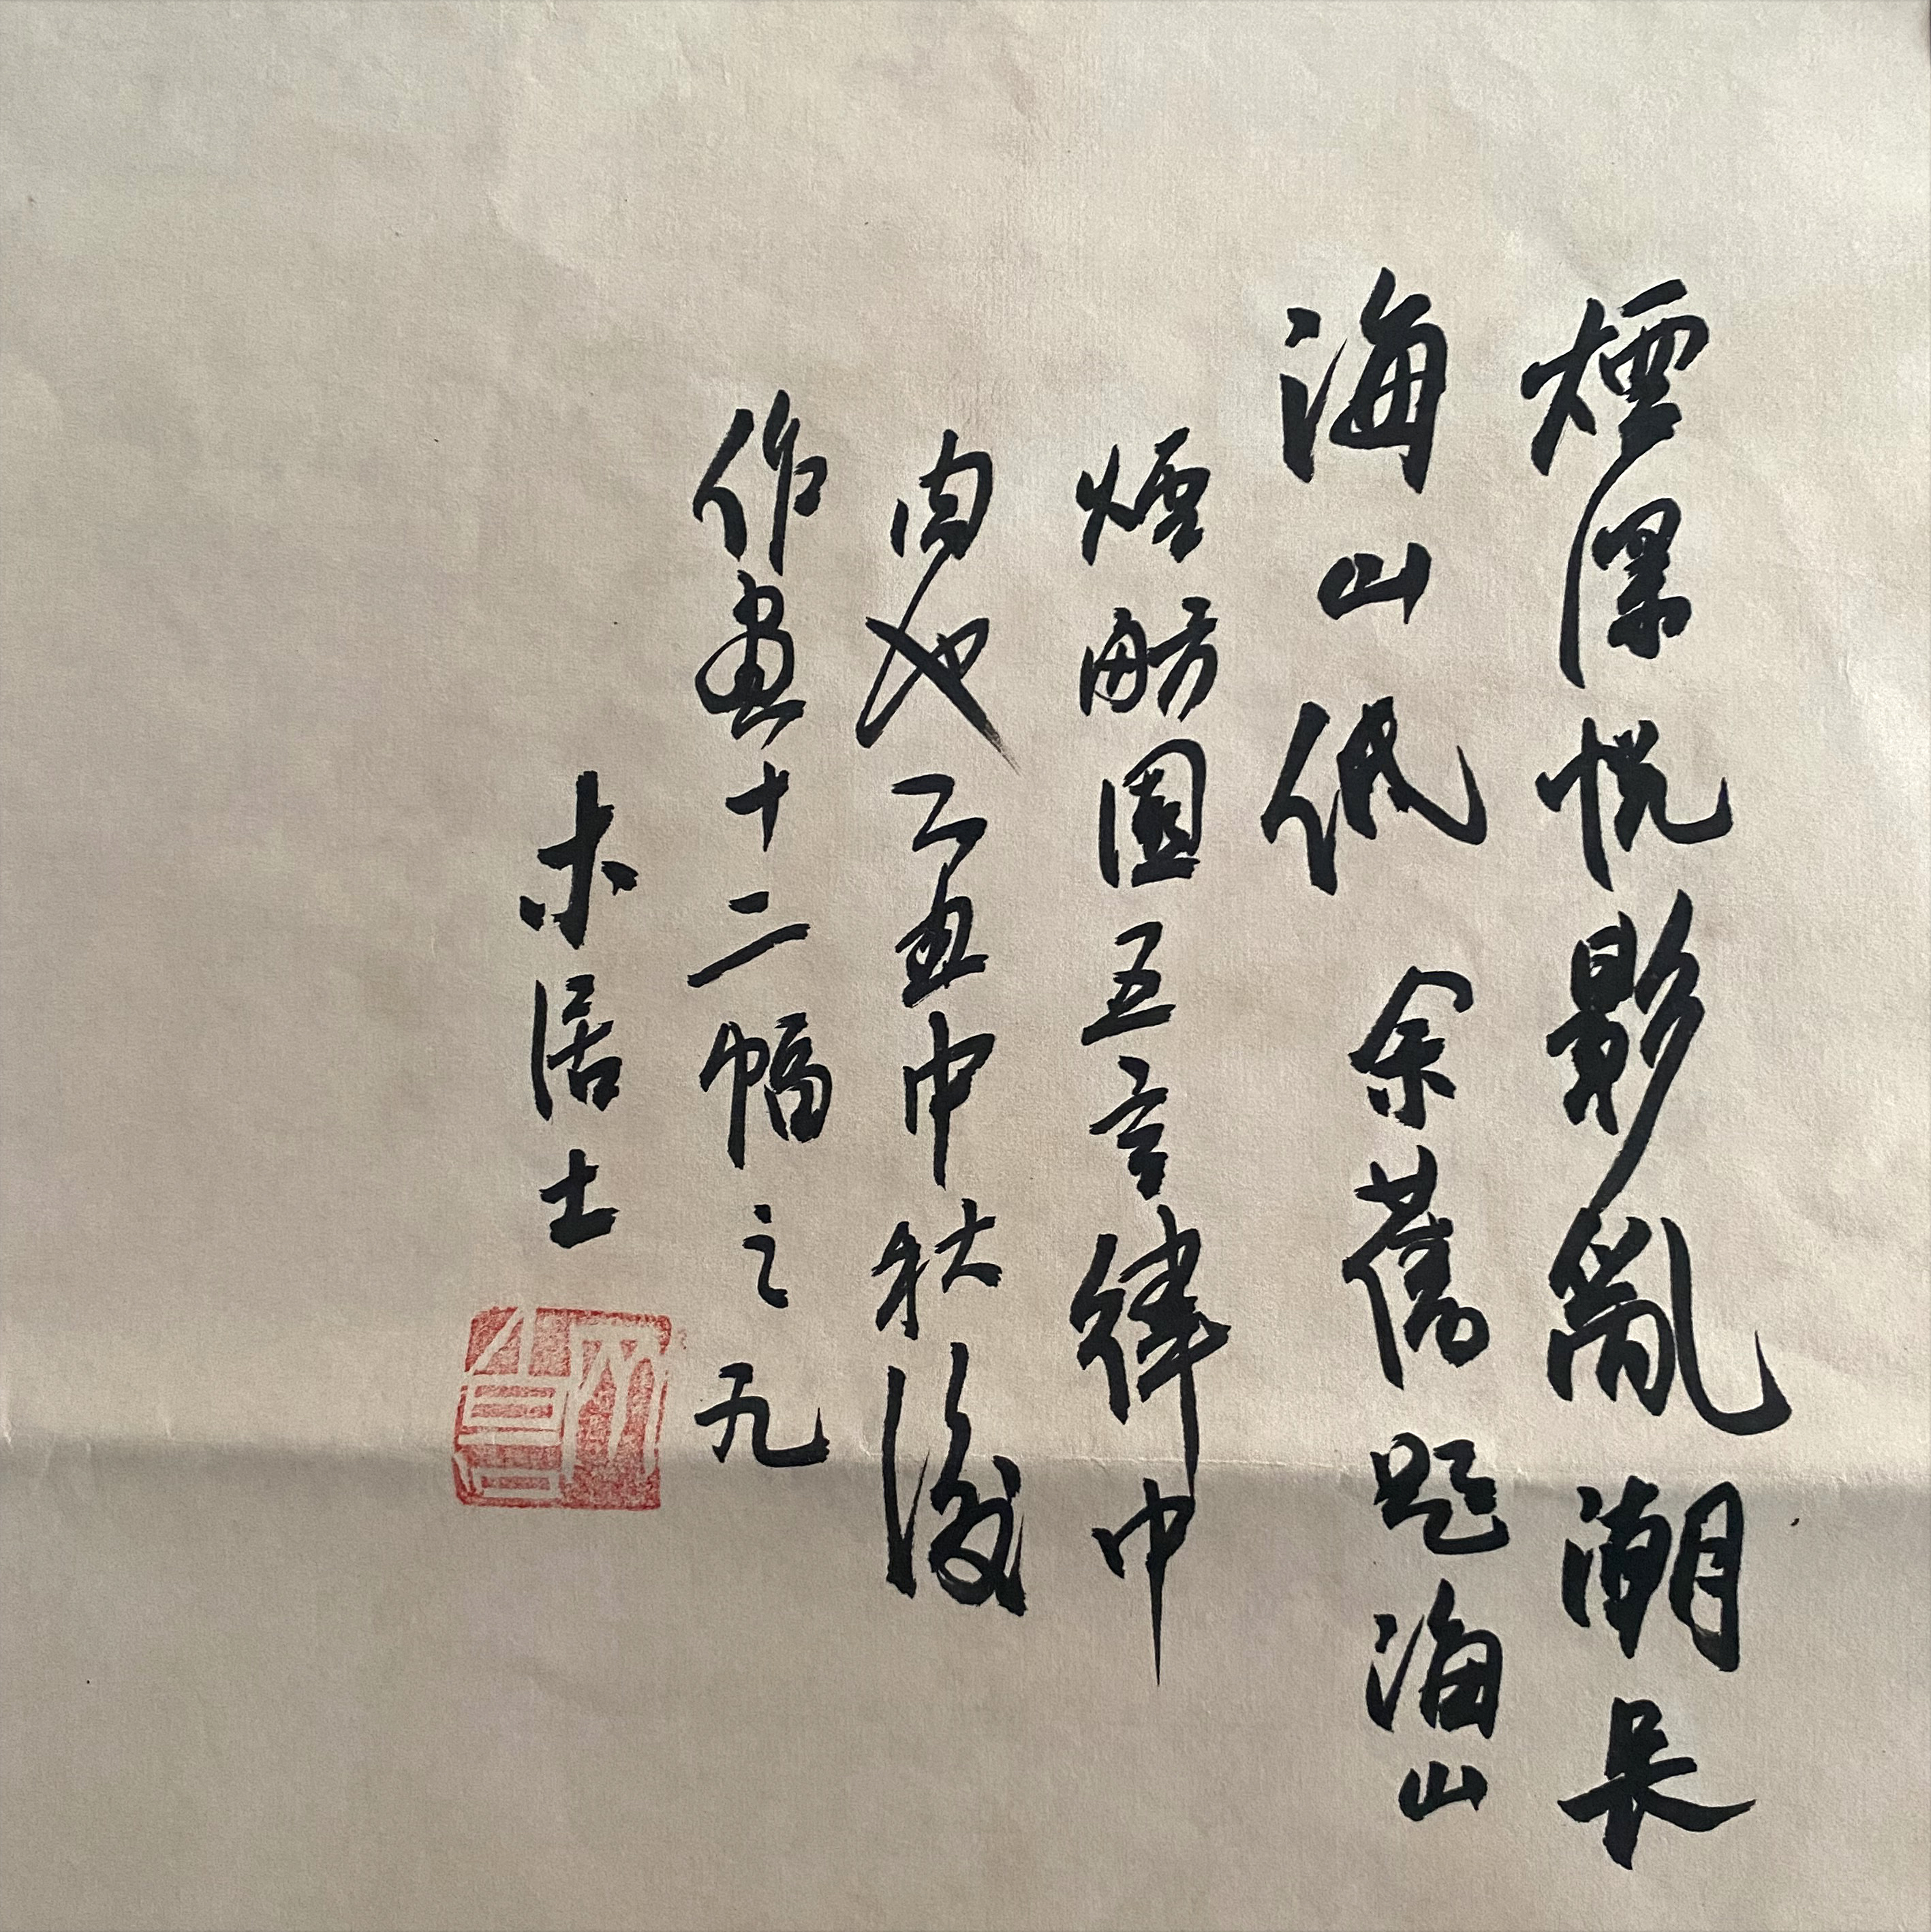 煙深帆影亂潮長
海山低 余舊題海山
煙舫圖五言律中
句也乙丑中秋後
作畫十二幅之九
木居士